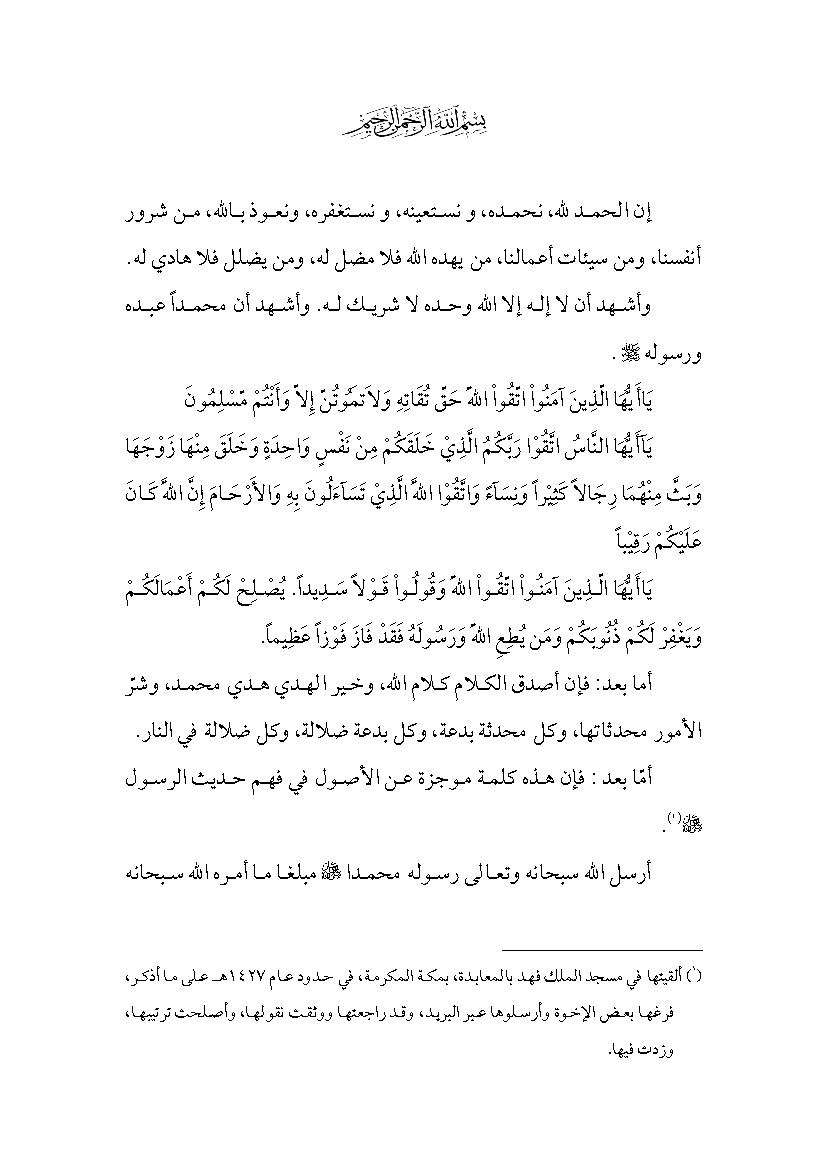 بسم الله الرحمن الرحيم
إن الحمـد لله، نحمـده، و نسـتعينه، و نسـتغفره، ونعـوذ بـالله، مـن شرور
أنفسنا، ومن سيئات أعمالنا، من يهده الله فلا مضل له، ومن يضلل فلا هادي له.
وأشـهد أن لا إلـه إلا الله وحـده لا شريـك لـه. وأشـهد أن محمـداً عبـده
ورسوله ﷺ .
يَاأَيُّهَا الَّذِينَ آمَنُواْ اتَّقُواْ اللهَ حَقَّ تُقَاتِهِ وَلاَتَمُوتُنَّ إِلاَّ وَأَنْتُمْ مُّسْلِمُونَ
يَآأَيُّهَا النَّاسُ اتَّقُوْا رَبَّكُمُ الَّذِيْ خَلَقَكُمْ مِنْ نَفْسٍ وَاحِدَةٍ وَخَلَقَ مِنْهَا زَوْجَهَا
وَبَثَّ مِنْهُمَا رِجَالاً كَثِيْراً وَنِسَآءً وَاتَّقُوْا اللهَ الَّذِيْ تَسَآءَلُونَ بِهِ وَالأَرْحَـامَ إِنَّ اللهَ كَـانَ
عَلَيْكُمْ رَقِيْباً
يَاأَيُّهَا الَّـذِينَ آمَنُـواْ اتَّقُـواْ اللهَ وَقُولُـواْ قَـوْلاً سَـدِيداً. يُصْـلِحْ لَكُـمْ أَعْمَالَكُـمْ
وَيَغْفِرْ لَكُمْ ذُنُوبَكُمْ وَمَن يُطِعِ اللهَ وَرَسُولَهُ فَقَدْ فَازَ فَوْزاً عَظِيماً.
أما بعد: فإن أصدق الكـلام كـلام الله، وخـير الهـدي هـدي محمـد، وشرّ
الأمور محدثاتها، وكل محدثة بدعة، وكل بدعة ضلالة، وكل ضلالة في النار.
أمّا بعد : فإن هـذه كلمـة مـوجزة عـن الأصـول في فهـم حـديث الرسـول
ﷺ(١).
أرسل الله سبحانه وتعـالى رسـوله محمـدا ﷺ مبلغـا مـا أمـره الله سـبحانه
(١) ألقيتها في مسجد الملك فهـد بالمعابـدة، بمكـة المكرمـة، في حـدود عـام ١٤٢٧هـ عـلى مـا أذكـر،
فرغهـا بعـض الإخـوة وأرسـلوها عـبر البريـد، وقـد راجعتهـا ووثقـت نقولهـا، وأصلحـت ترتيبهـا،
وزدت فيها.